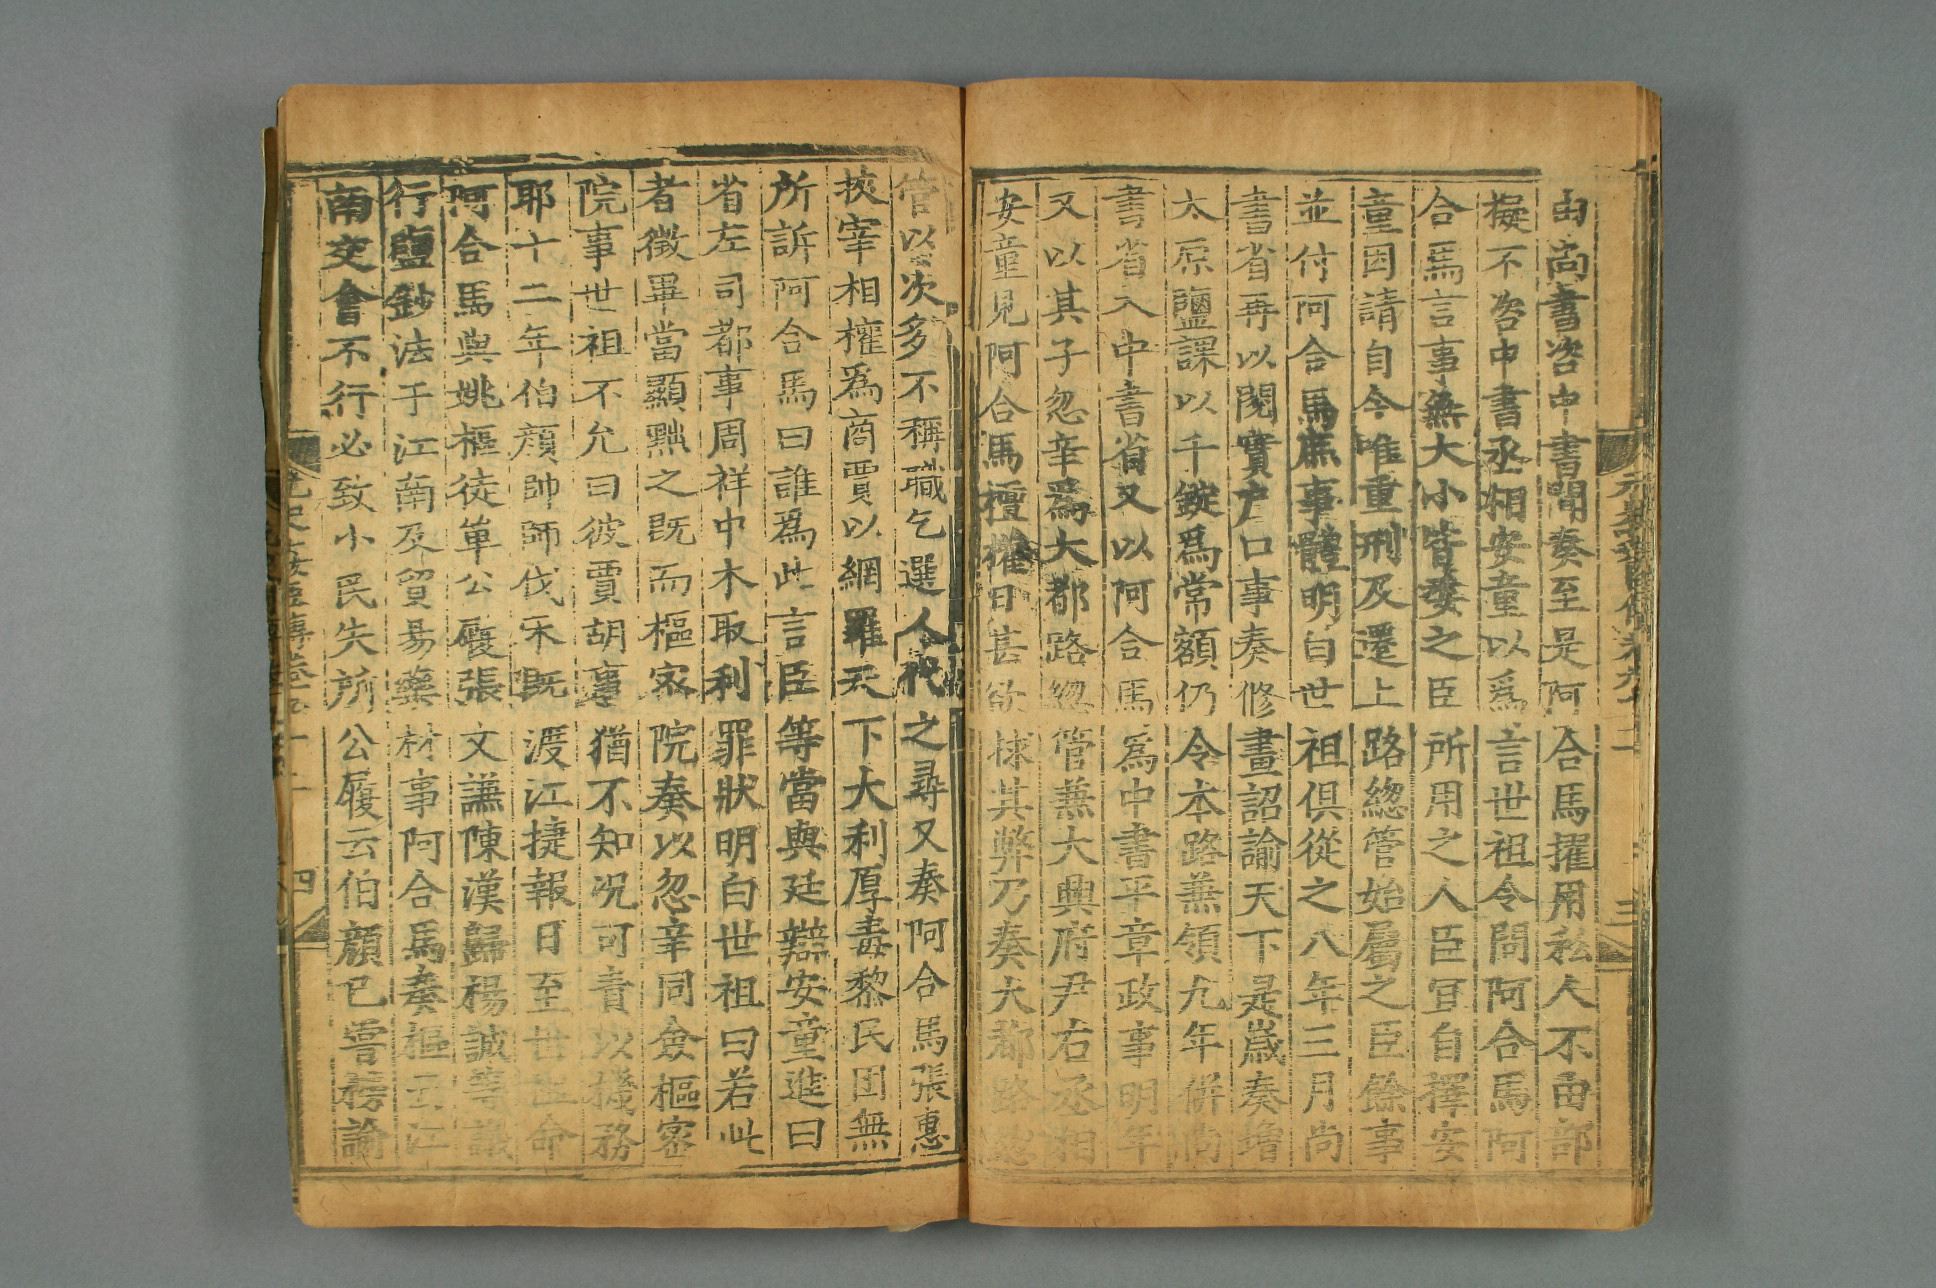 由尚書咨中書聞奏至是阿合馬擢用私人不由部
擬不咨中書丞相安童以爲言世祖令問阿合馬阿
合馬言事無大小皆委之臣所用之人臣宜自擇安
童因請自今唯重刑及遷上路總管始屬之臣餘事
並付阿合馬庶事體明白世祖俱從之八年三月尚
書省再以閱實户口事奏條畫詔諭天下是歲奏增
太原鹽課以千錠爲常額仍令本路兼領九年併尚
書省入中書省又以阿合馬爲中書平章政事明年
又以其子忽辛爲大都路總管兼大興府尹右丞相
安童見阿合馬擅權日甚欲捄其弊乃奏大都路總
管以次多不稱職乞選人代之尋又奏阿合馬張惠
挾宰相權爲商賈以網羅天下大利厚毒黎民困無
所訴阿合馬曰誰爲此言臣等當與廷辯安童進曰
省左司都事周祥中木取利罪狀明白世祖曰若此
者徵畢當顯黜之既而樞密院奏以忽辛同僉樞密
院事世祖不允曰彼賈胡事猶不知况可責以機務
耶十二年伯顔帥師伐宋既渡江捷報日至世祖命
阿合馬與姚樞徒單公履張文謙陳漢歸楊誠等議
行鹽鈔法于江南及貿易藥材事阿合馬奏樞云江
南交會不行必致小民失所公履云伯顔已嘗榜諭
元史姦臣傳卷九十二
三
四